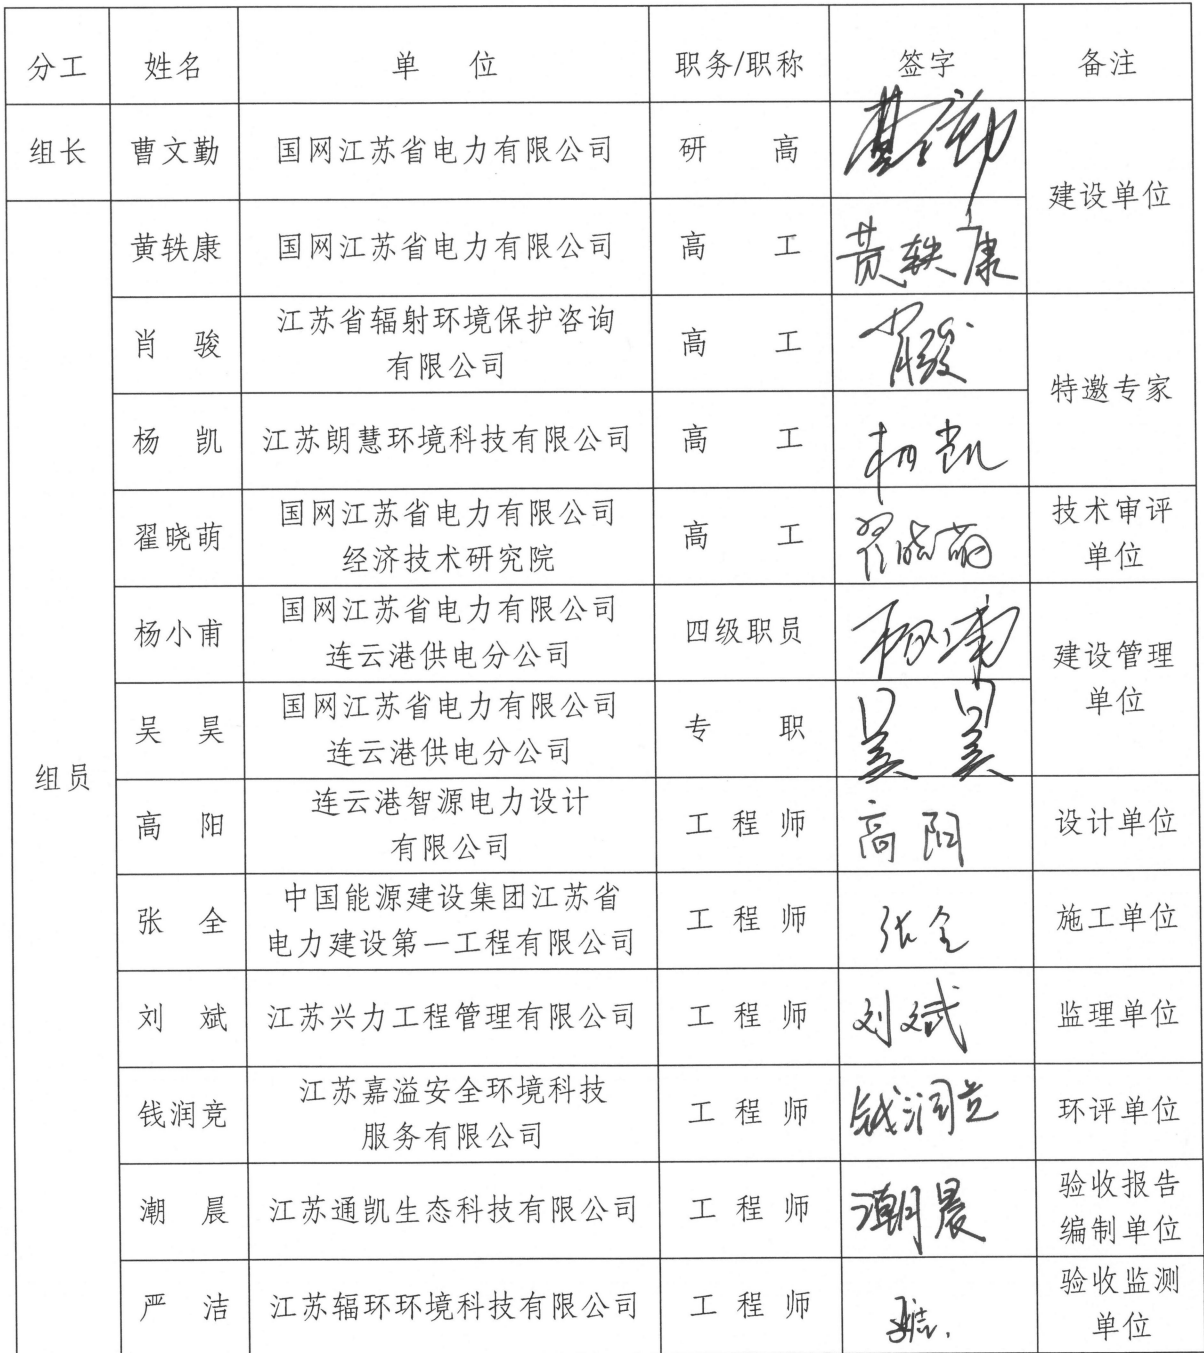 分工 姓名 单 位 职务/职称 签字 备注
组长 曹文勤 国网江苏省电力有限公司 研 高 建设单位
组员 黄轶康 国网江苏省电力有限公司 高 工 黄轶康
肖 骏 江苏省辐射环境保护咨询
有限公司 高 工 肖骏 特邀专家
杨 凯 江苏朗慧环境科技有限公司 高 工 杨凯
翟晓萌 国网江苏省电力有限公司
经济技术研究院 高 工 翟晓萌 技术审评
单位
杨小甫 国网江苏省电力有限公司
连云港供电分公司 四级职员 建设管理
单位
吴 昊 国网江苏省电力有限公司
连云港供电分公司 专 职 吴昊
高 阳 连云港智源电力设计
有限公司 工 程 师 高阳 设计单位
张 全 中国能源建设集团江苏省
电力建设第一工程有限公司 工 程 师 张全 施工单位
刘 斌 江苏兴力工程管理有限公司 工 程 师 刘斌 监理单位
钱润竞 江苏嘉溢安全环境科技
服务有限公司 工 程 师 钱润竞 环评单位
潮 晨 江苏通凯生态科技有限公司 工 程 师 潮晨 验收报告
编制单位
严 洁 江苏辐环环境科技有限公司 工 程 师 验收监测
单位